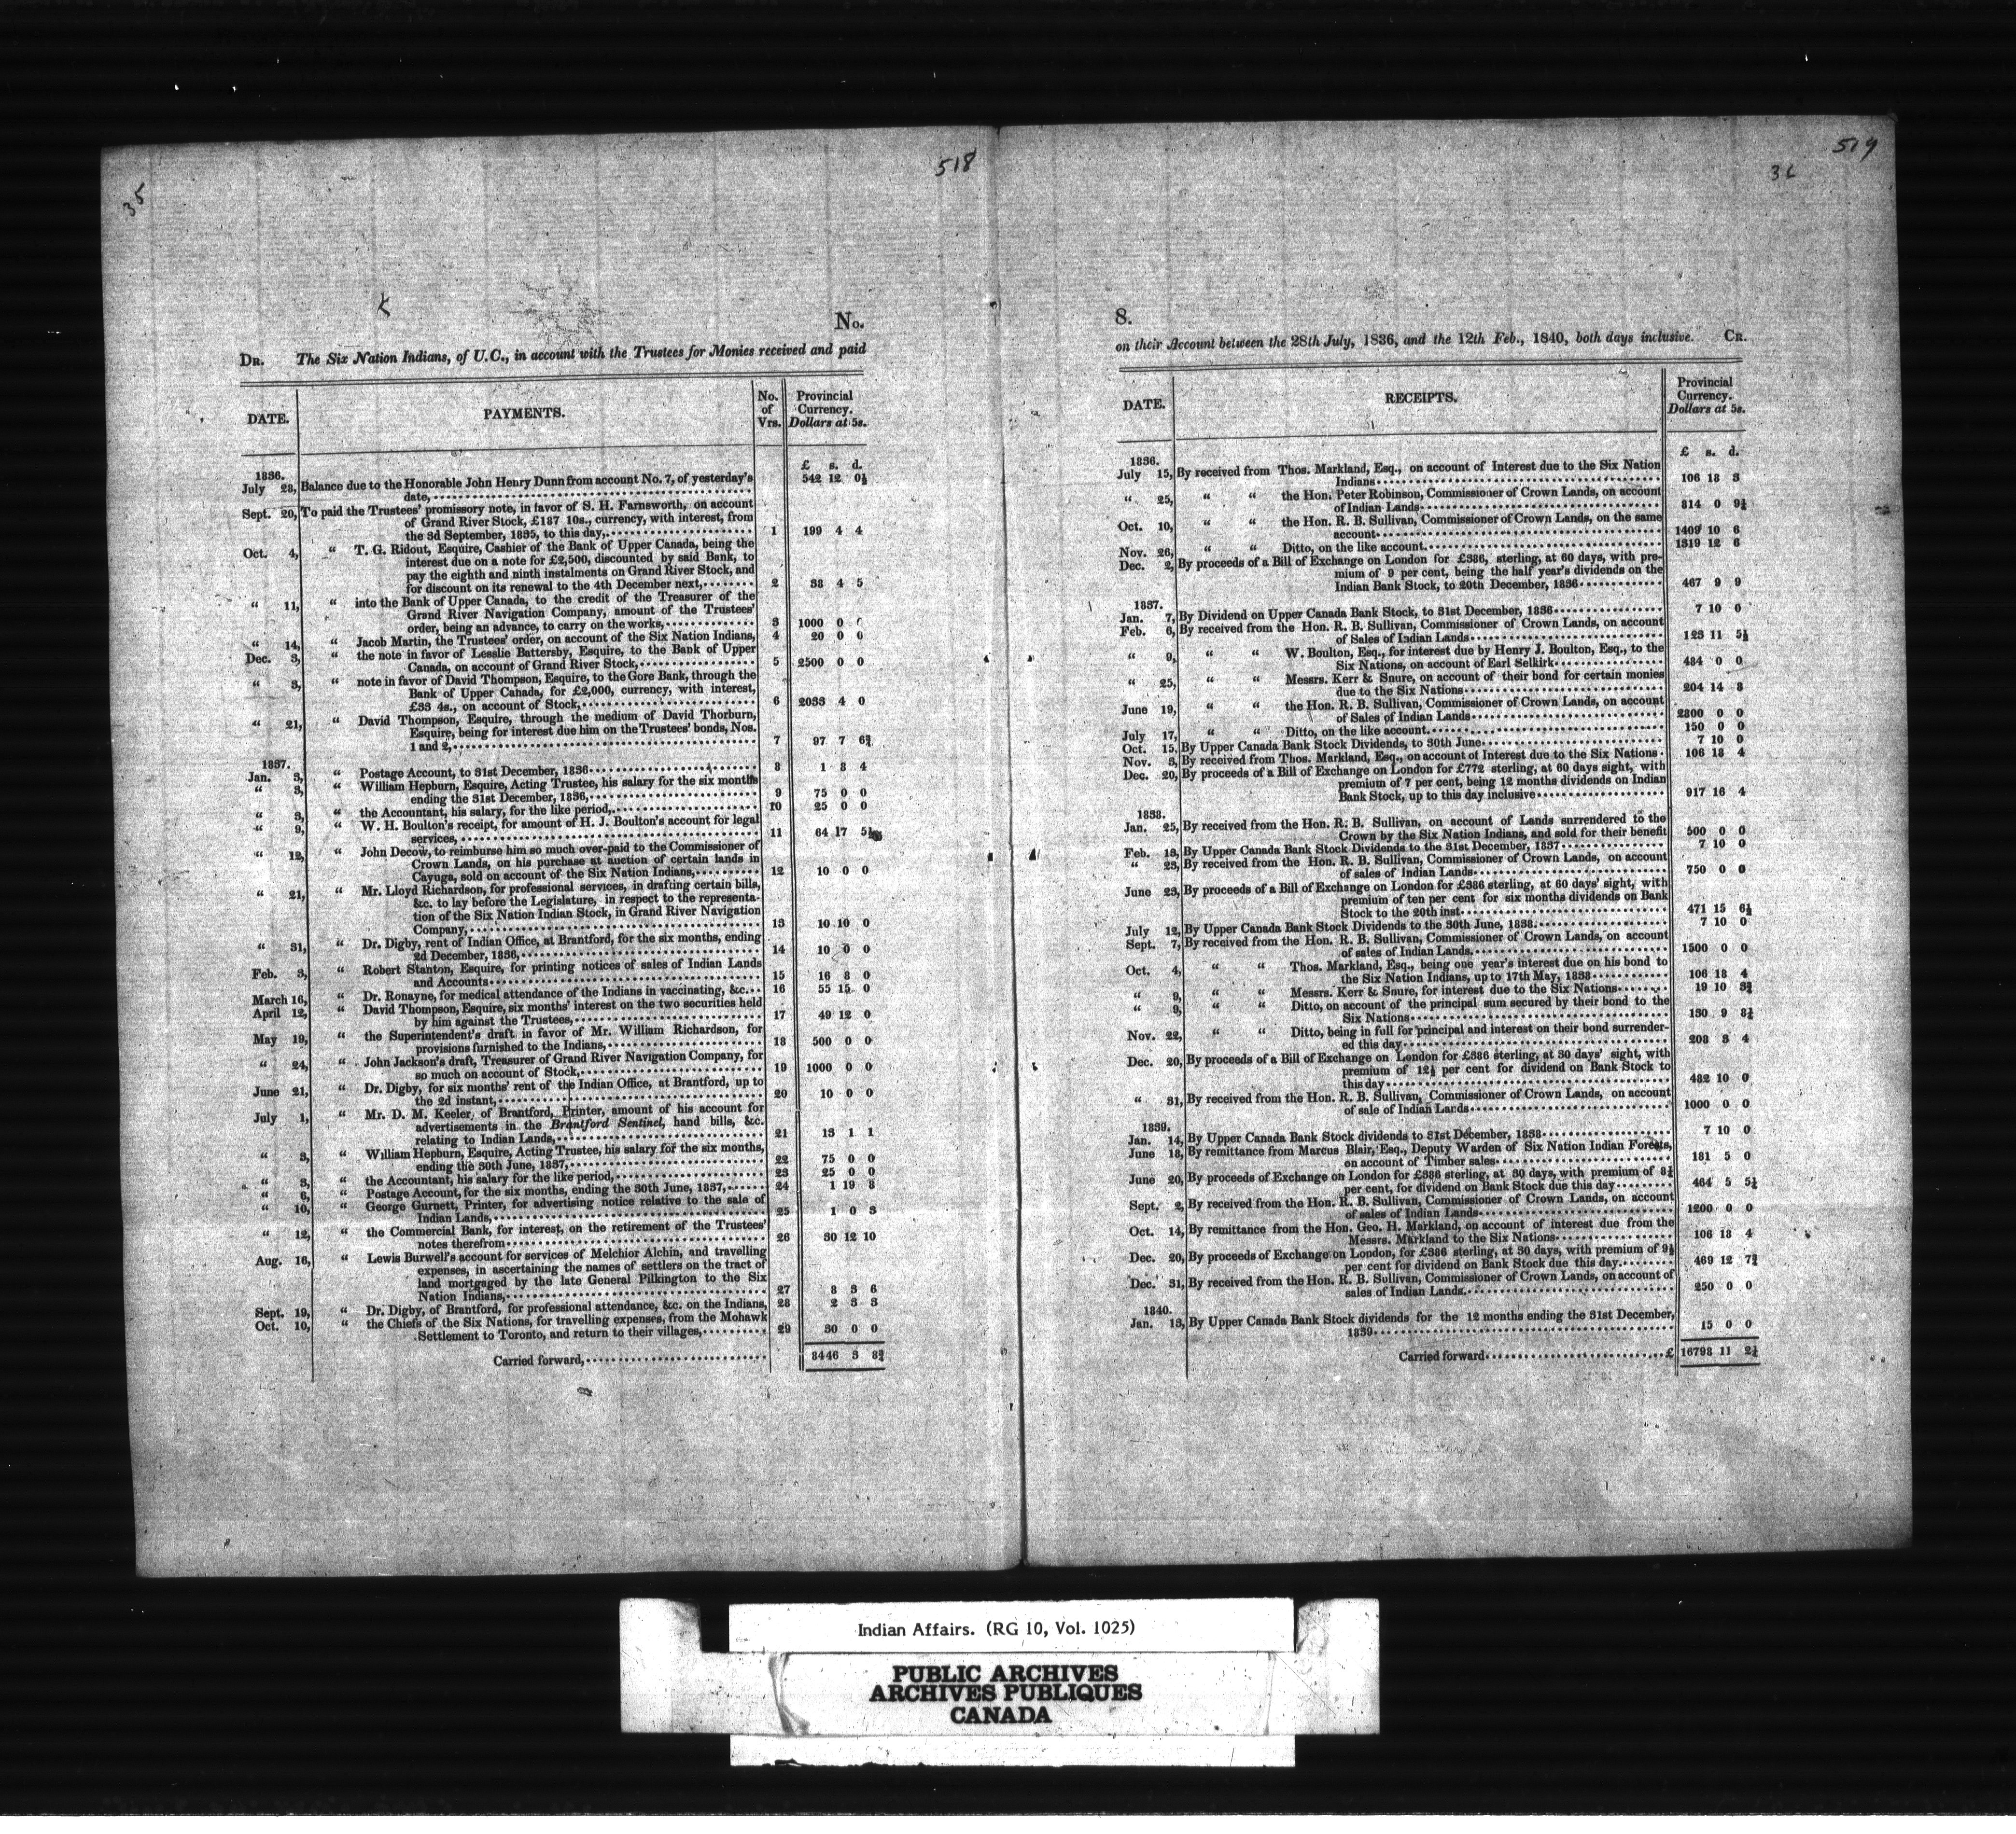 35
518
No.
DR. The Six Nation Indians, of U.C., in account with the Trustees for Monies received and paid
DATE. PAYMENTS. No. of Vrs. Provincial Currency. Dollars at 5s.
£ s. d.
1836.
July 28, Balance due to the Honorable John Henry Dunn from account No. 7, of yesterday's 542 12 0½
date,
Sept. 20, To paid the Trustees' promissory note, in favor of S. H. Farnsworth, on account
of Grand River Stock, £187 10s., currency, with interest, from
the 3d September, 1835, to this day, 1 199 4 4
Oct. 4, “ T. G. Ridout, Esquire, Cashier of the Bank of Upper Canada, being the
interest due on a note for £2,500, discounted by said Bank, to
pay the eighth and ninth instalments on Grand River Stock, and
for discount on its renewal to the 4th December next, 2 38 4 5
“ 11, “ into the Bank of Upper Canada, to the credit of the Treasurer of the
Grand River Navigation Company, amount of the Trustees'
order, being an advance, to carry on the works, 3 1000 0 0
“ 14, “ Jacob Martin, the Trustees' order, on account of the Six Nation Indians, 4 20 0 0
Dec. 3, “ the note in favor of Lesslie Battersby, Esquire, to the Bank of Upper
Canada, on account of Grand River Stock, 5 2500 0 0
“ 3, “ note in favor of David Thompson, Esquire, to the Gore Bank, through the
Bank of Upper Canada, for £2,000, currency, with interest,
£33 4s., on account of Stock, 6 2033 4 0
“ 21, “ David Thompson, Esquire, through the medium of David Thorburn,
Esquire, being for interest due him on the Trustees' bonds, Nos.
1 and 2, 7 97 7 6¾
1837.
Jan. 3, “ Postage Account, to 31st December, 1836 8 1 8 4
“ 3, “ William Hepburn, Esquire, Acting Trustee, his salary for the six months
ending the 31st December, 1836, 9 75 0 0
“ 3, “ the Accountant, his salary, for the like period, 10 25 0 0
“ 9, “ W. H. Boulton's receipt, for amount of H. J. Boulton's account for legal
services, 11 64 17
“ 12, “ John Decow, to reimburse him so much over-paid to the Commissioner of
Crown Lands, on his purchase at auction of certain lands in
Cayuga, sold on account of the Six Nation Indians, 12 10 0 0
“ 21, “ Mr. Lloyd Richardson, for professional services, in drafting certain bills,
&c. to lay before the Legislature, in respect to the representa-
tion of the Six Nation Indian Stock, in Grand River Navigation
Company, 13 10 10 0
“ 31, “ Dr. Digby, rent of Indian Office, at Brantford, for the six months, ending
2d December, 1836, 14 10 0 0
Feb. 3, “ Robert Stanton, Esquire, for printing notices of sales of Indian Lands
and Accounts 15 16 8 0
March 16, “ Dr. Ronayne, for medical attendance of the Indians in vaccinating, &c. 16 55 15 0
April 12, “ David Thompson, Esquire, six months' interest on the two securities held
by him against the Trustees, 17 49 12 0
May 19, “ the Superintendent's draft in favor of Mr. William Richardson, for
provisions furnished to the Indians, 18 500 0 0
“ 24, “ John Jackson's draft, Treasurer of Grand River Navigation Company, for
so much on account of Stock, 19 1000 0 0
June 21, “ Dr. Digby, for six months' rent of the Indian Office, at Brantford, up to
the 2d instant, 20 10 0 0
July 1, “ Mr. D. M. Keeler, of Brantford, Printer, amount of his account for
advertisements in the Brantford Sentinel, hand bills, &c.
relating to Indian Lands, 21 13 1 1
“ 3, “ William Hepburn, Esquire, Acting Trustee, his salary for the six months,
ending the 30th June, 1837, 22 75 0 0
“ 3, “ the Accountant, his salary for the like period, 23 25 0 0
“ 6, “ Postage Account, for the six months, ending the 30th June, 1837, 24 1 19 8
“ 10, “ George Gurnett, Printer, for advertising notice relative to the sale of
Indian Lands, 25 1 0 3
“ 12, “ the Commercial Bank, for interest, on the retirement of the Trustees'
notes therefrom 26 30 12 10
Aug. 16, “ Lewis Burwell's account for services of Melchior Alchin, and travelling
expenses, in ascertaining the names of settlers on the tract of
land mortgaged by the late General Pilkington to the Six
Nation Indians, 27 8 3 6
Sept. 19, “ Dr. Digby, of Brantford, for professional attendance, &c. on the Indians, 28 2 3 3
Oct. 10, “ the Chiefs of the Six Nations, for travelling expenses, from the Mohawk
Settlement to Toronto, and return to their villages, 29 30 0 0
Carried forward, 8446 3 8¾
519
36
8.
on their Account between the 28th July, 1836, and the 12th Feb., 1840, both days inclusive. CR.
DATE. RECEIPTS. Provincial Currency. Dollars at 5s.
£ s. d.
1836.
July 15, By received from Thos. Markland, Esq., on account of Interest due to the Six Nation
Indians 106 18 3
“ 25, “ “ the Hon. Peter Robinson, Commissioner of Crown Lands, on account
of Indian Lands 814 0 9½
Oct. 10, “ “ the Hon. R. B. Sullivan, Commissioner of Crown Lands, on the same
account 1409 10 6
Nov. 26, “ “ Ditto, on the like account. 1319 12 6
Dec. 2, By proceeds of a Bill of Exchange on London for £386, sterling, at 60 days, with pre-
mium of 9 per cent, being the half year's dividends on the
Indian Bank Stock, to 20th December, 1836 467 9 9
1837.
Jan. 7, By Dividend on Upper Canada Bank Stock, to 31st December, 1836 7 10 0
Feb. 6, By received from the Hon. R. B. Sullivan, Commissioner of Crown Lands, on account
of Sales of Indian Lands 123 11 5½
“ 9, “ “ W. Boulton, Esq., for interest due by Henry J. Boulton, Esq., to the
Six Nations, on account of Earl Selkirk 484 0 0
“ 25, “ “ Messrs. Kerr & Snure, on account of their bond for certain monies
due to the Six Nations 204 14 8
June 19, “ “ the Hon. R. B. Sullivan, Commissioner of Crown Lands, on account
of Sales of Indian Lands 2800 0 0
July 17, “ “ Ditto, on the like account. 150 0 0
Oct. 15, By Upper Canada Bank Stock Dividends, to 30th June 7 10 0
Nov. 3, By received from Thos. Markland, Esq., on account of Interest due to the Six Nations 106 18 4
Dec. 20, By proceeds of a Bill of Exchange on London for £772 sterling, at 60 days sight, with
premium of 7 per cent, being 12 months dividends on Indian
Bank Stock, up to this day inclusive 917 16 4
1838.
Jan. 25, By received from the Hon. R. B. Sullivan, on account of Lands surrendered to the
Crown by the Six Nation Indians, and sold for their benefit 500 0 0
Feb. 13, By Upper Canada Bank Stock Dividends to the 31st December, 1837 7 10 0
“ 23, By received from the Hon. R. B. Sullivan, Commissioner of Crown Lands, on account
of sales of Indian Lands 750 0 0
June 23, By proceeds of a Bill of Exchange on London for £386 sterling, at 60 days' sight, with
premium of ten per cent for six months dividends on Bank
Stock to the 20th inst 471 15 6½
July 12, By Upper Canada Bank Stock Dividends to the 30th June, 1838. 7 10 0
Sept. 7, By received from the Hon. R. B. Sullivan, Commissioner of Crown Lands, on account
of sales of Indian Lands. 1500 0 0
Oct. 4, “ “ Thos. Markland, Esq., being one year's interest due on his bond to
the Six Nation Indians, up to 17th May, 1838 106 18 4
“ 9, “ “ Messrs. Kerr & Snure, for interest due to the Six Nations 19 10 3¾
“ 9, “ “ Ditto, on account of the principal sum secured by their bond to the
Six Nations 130 9 8¼
Nov. 22, “ “ Ditto, being in full for principal and interest on their bond surrender-
ed this day 208 3 4
Dec. 20, By proceeds of a Bill of Exchange on London for £386 sterling, at 30 days' sight, with
premium of 12½ per cent for dividend on Bank Stock to
this day 482 10 0
“ 31, By received from the Hon. R. B. Sullivan, Commissioner of Crown Lands, on account
of sale of Indian Lands 1000 0 0
1839.
Jan. 14, By Upper Canada Bank Stock dividends to 31st December, 1838 7 10 0
June 18, By remittance from Marcus Blair, Esq., Deputy Warden of Six Nation Indian Forests,
on account of Timber sales 181 5 0
June 20, By proceeds of Exchange on London for £386 sterling, at 30 days, with premium of 8¼
per cent, for dividend on Bank Stock due this day 464 5 5½
Sept. 2, By received from the Hon. R. B. Sullivan, Commissioner of Crown Lands, on account
of sales of Indian Lands 1200 0 0
Oct. 14, By remittance from the Hon. Geo. H. Markland, on account of interest due from the
Messrs. Markland to the Six Nations 106 18 4
Dec. 20, By proceeds of Exchange on London, for £386 sterling, at 30 days, with premium of 9½
per cent for dividend on Bank Stock due this day. 469 12 7¾
Dec. 31, By received from the Hon. R. B. Sullivan, Commissioner of Crown Lands, on account of
sales of Indian Lands. 250 0 0
1840.
Jan. 13, By Upper Canada Bank Stock dividends for the 12 months ending the 31st December,
1839 15 0 0
Carried forward £ 16798 11 2¼
Indian Affairs. (RG 10, Vol. 1025)
PUBLIC ARCHIVES
ARCHIVES PUBLIQUES
CANADA